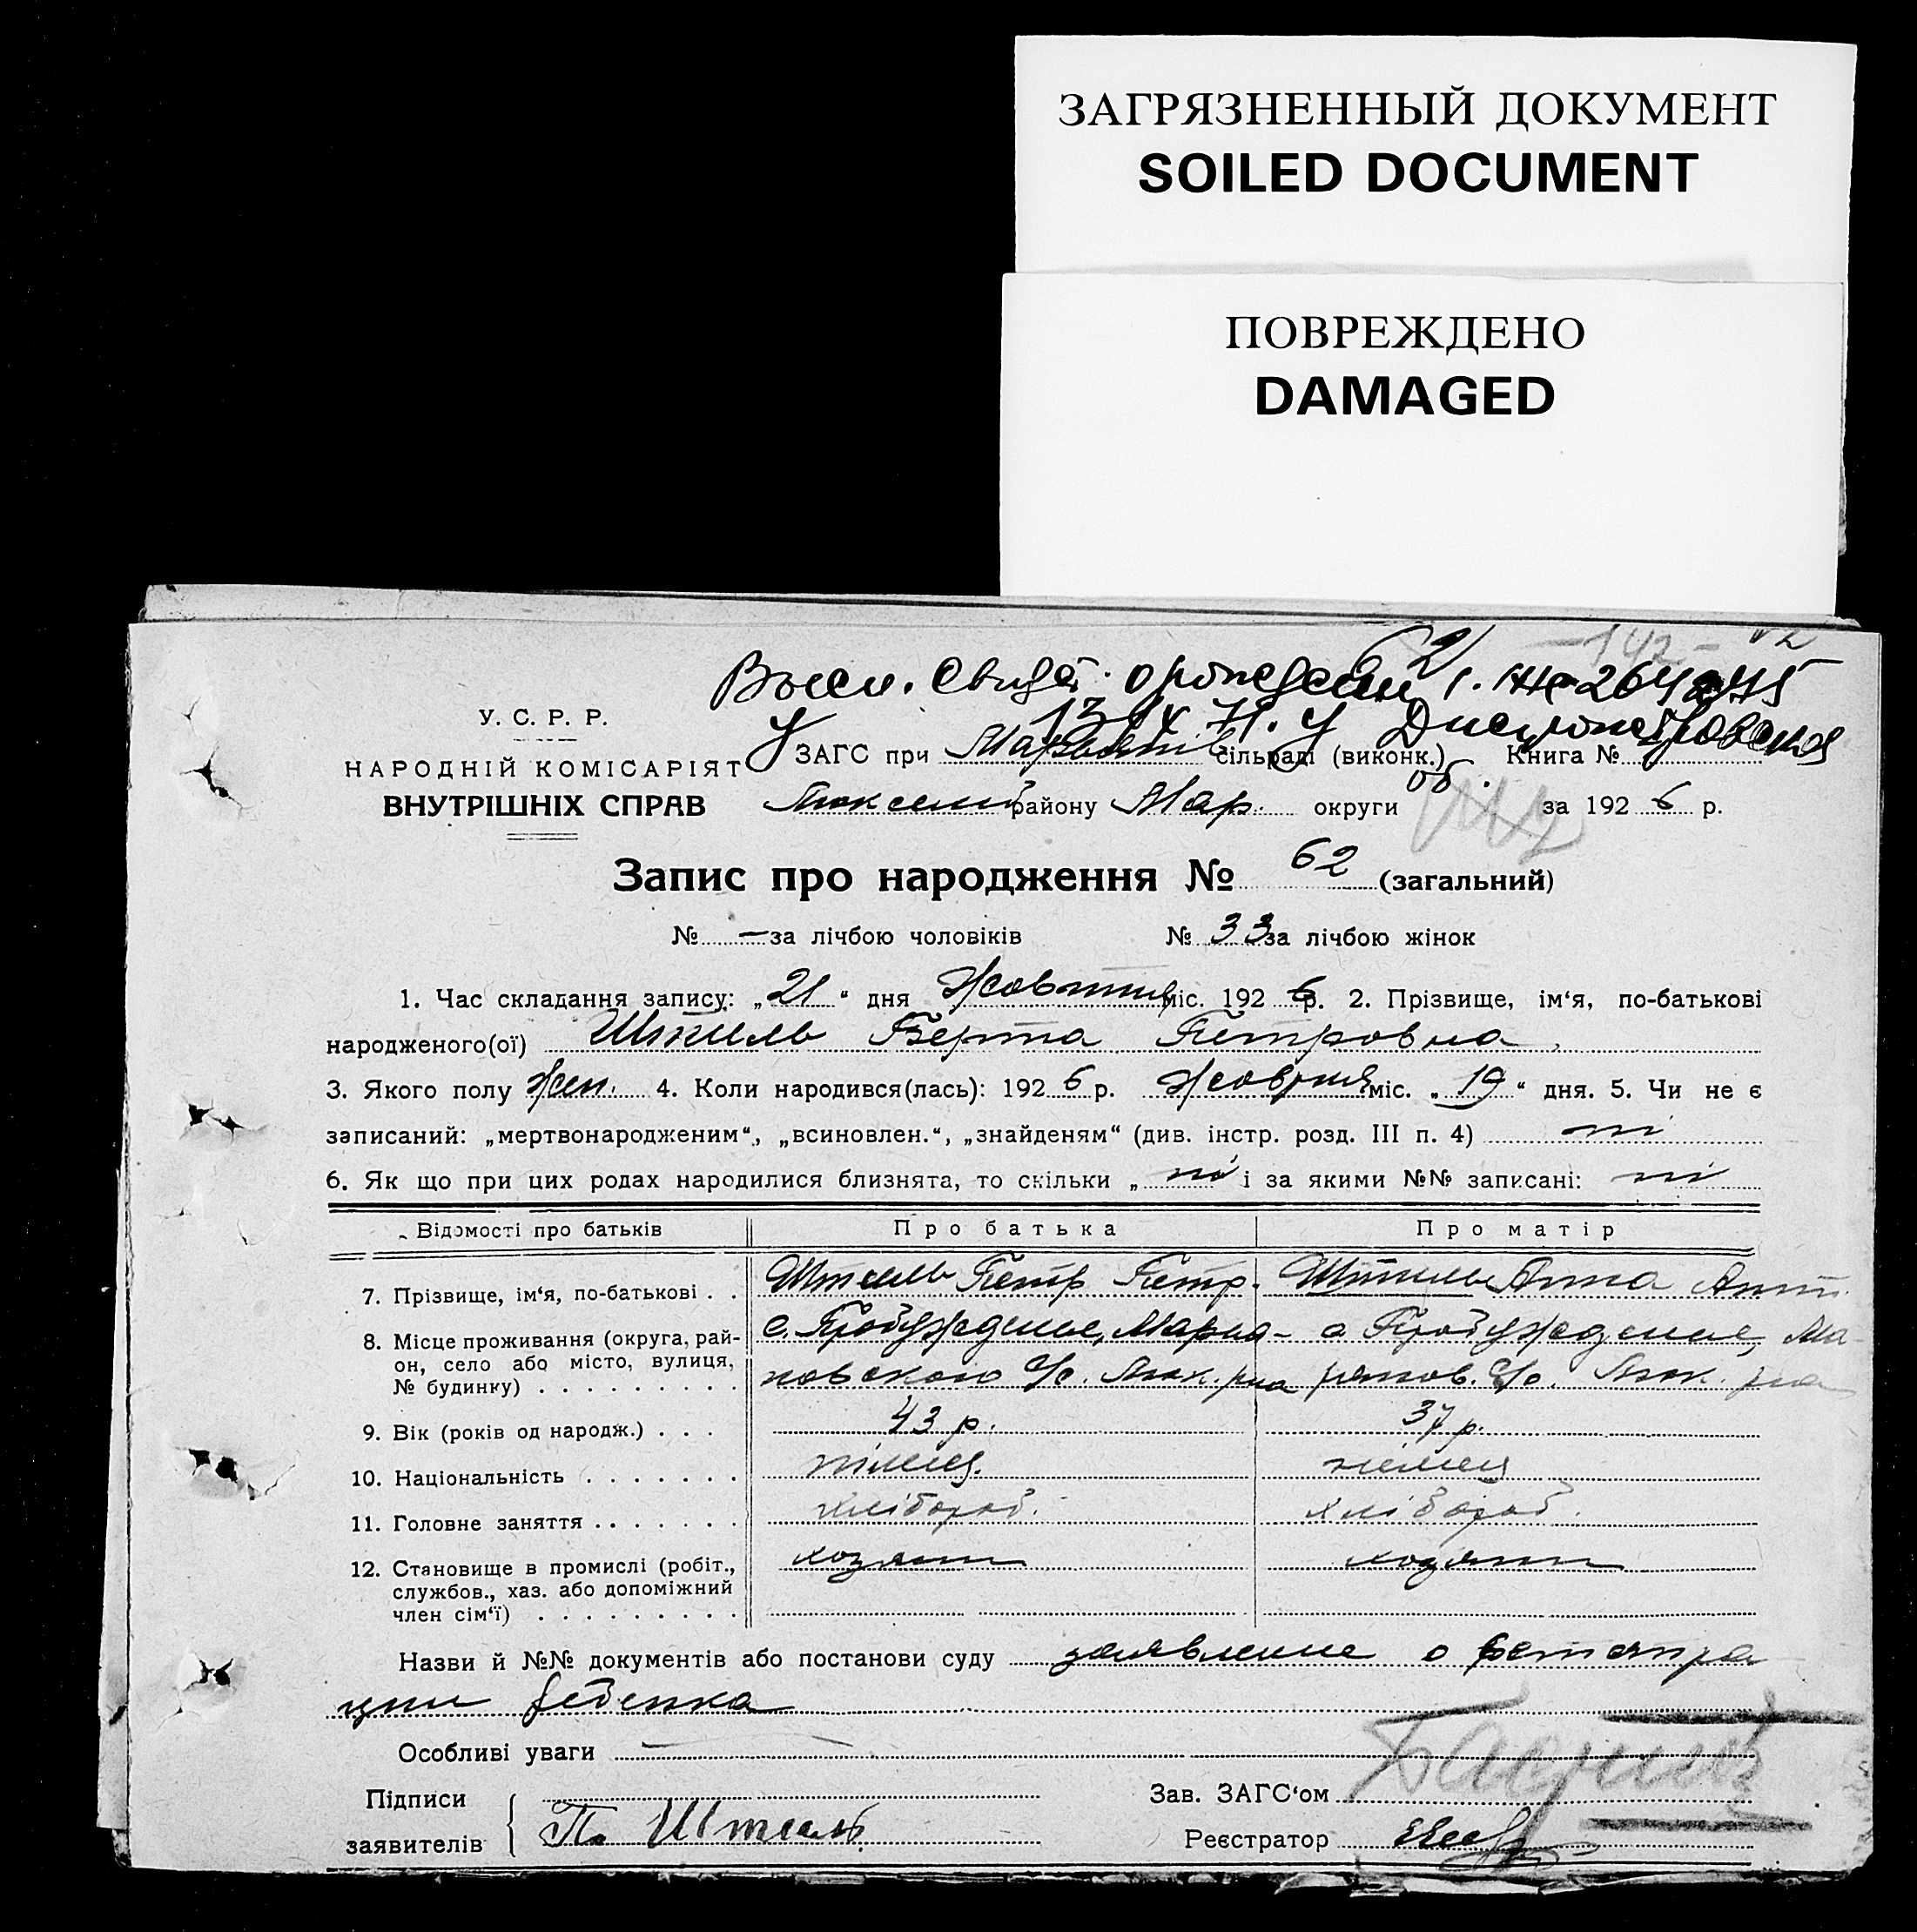 ЗАГРЯЗНЕННЫЙ ДОКУМЕНТ
SOILED DOCUMENT
ПОВРЕЖДЕНО
DAMAGED
-142-
62
У. С. Р. Р.
НАРОДНІЙ КОМІСАРІЯТ
ВНУТРІШНІХ СПРАВ
ЗАГС при сільраді (виконк.) Книга №
району Мар. округи за 1926 р.
Запис про народження № 62 (загальний)
№ — за лічбою чоловіків № 33 за лічбою жінок
1. Час складання запису: „21“ дня Жовтня міс. 1926 р. 2. Прізвище, ім‘я, по-батькові
народженого(ої) Штель Берта Петровна
3. Якого полу жен. 4. Коли народився(лась): 1926 р. Жовтня міс. „19“ дня. 5. Чи не є
записаний: „мертвонародженим“, „всиновлен.“, „знайденям“ (див. інстр. розд. III п. 4) ні
6. Як що при цих родах народилися близнята, то скільки „ ні і за якими №№ записані: ні
Відомості про батьків Про батька Про матір
7. Прізвище, ім‘я, по-батькові . . Штель Петр Петр. Штель Анна Ант.
8. Місце проживання (округа, рай-
он, село або місто, вулиця,
№ будинку) . . . . . . . . .
с. Пробуждение, Марья- с Пробуждение, Ма-
новского с/с. Люк. р-на рянов. с/с. Люк. р-на
9. Вік (років од народж.) . . . 43 р. 37 р.
10. Національність . . . . . . . німец. немец
11. Головне заняття . . . . . . . хлібороб. хлібороб.
12. Становище в промислі (робіт.,
службов., хаз. або допоміжний
член сім‘ї) . . . . . . . . .
хозяин хозяин
Назви й №№ документів або постанови суду заявление о
ции ребенка
Особливі уваги —
Підписи
заявителів П. Штель
Зав. ЗАГС‘ом
Реєстратор